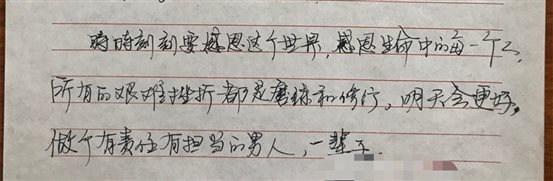 时时刻刻要感恩这个世界,感恩生命中的每一个人,
所有的艰难挫折都是磨练和修行,明天会更好,
做个有责任有担当的男人,一辈子.